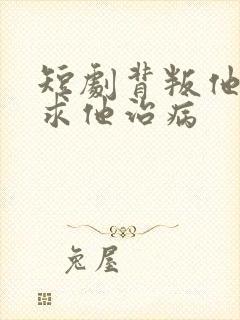 短劇背叛他
求他治病
兔屋